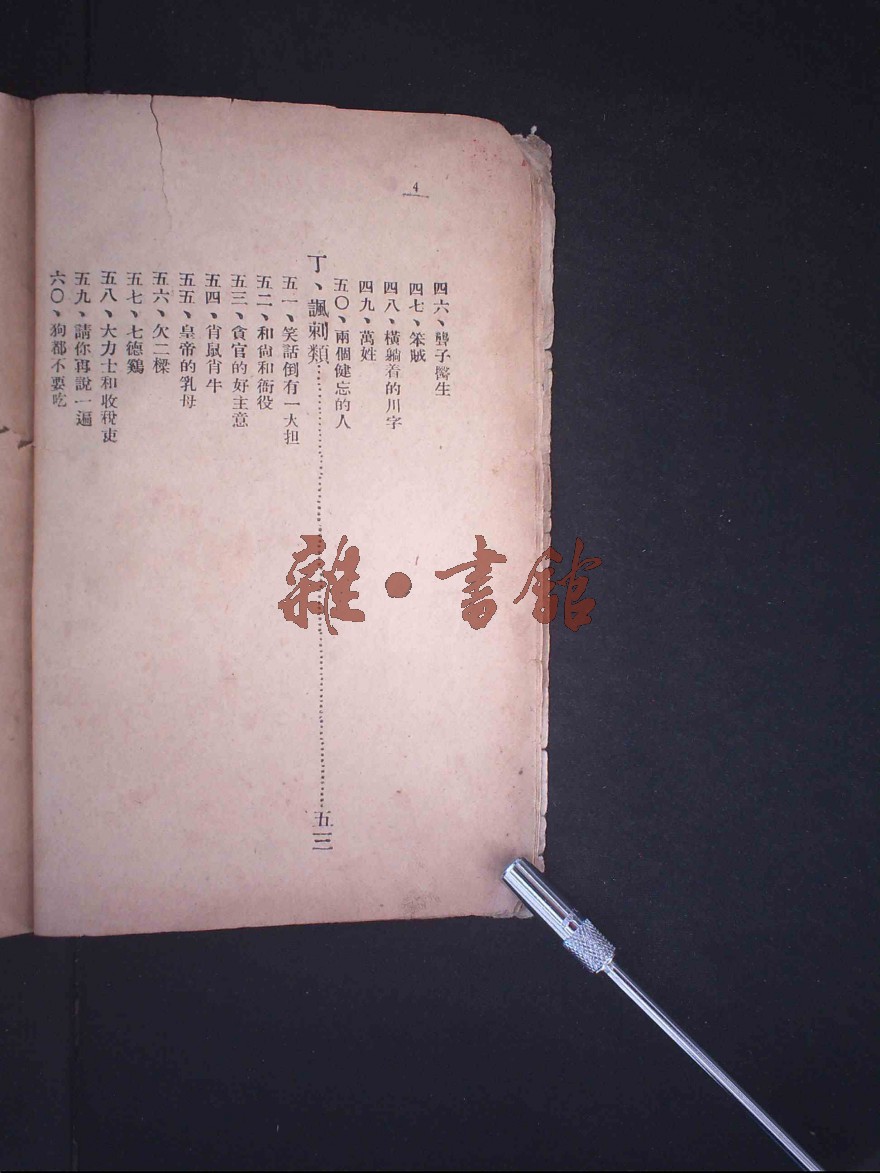 4
四六、聾子醫生
四七、笨賊
四八、橫躺着的川字
四九、萬姓
五〇、兩個健忘的人
丁、諷刺類……五三
五一、笑話倒有一大担
五二、和尙和衙役
五三、貪官的好主意
五四、肖鼠肖牛
五五、皇帝的乳母
五六、欠二樑
五七、七德鷄
五八、大力士和收稅吏
五九、請你再說一遍
六〇、狗都不要吃
雜·書館